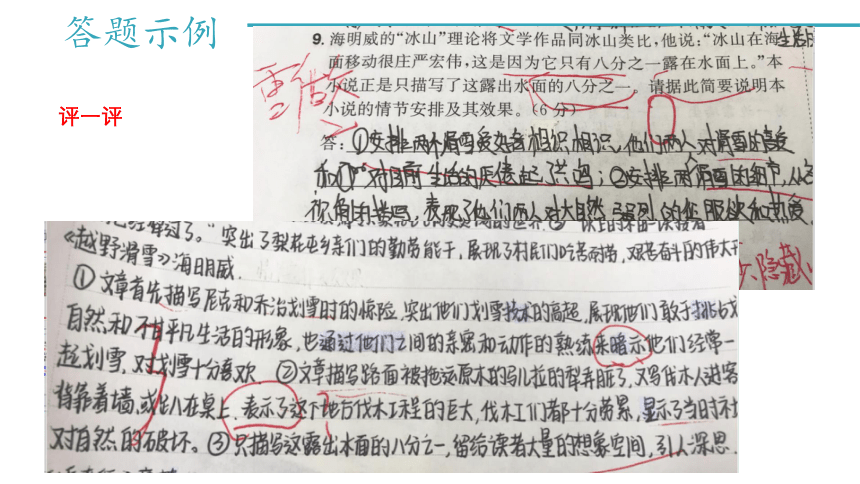 答题示例
评一评
9. 海明威的“冰山”理论将文学作品同冰山类比，他说：“冰山在海
面移动很庄严宏伟，这是因为它只有八分之一露在水面上。”本
小说正是只描写了这露出水面的八分之一。请据此简要说明本
小说的情节安排及其效果。（6分）
答：①安排两个滑雪爱好者相识相识，他们两人对滑雪的喜爱
对目前生活的 ；②安排两个滑雪的细节，从
表现了他们两人对大自然强烈的征服欲和热爱，
隐藏
突出了梨花屯乡亲们的勤劳能干，展现了村民们吃苦耐劳，艰苦奋斗的伟大
《越野滑雪》海明威.
①文章首先描写尼克和乔治划雪时的惊险，突出他们划雪技术的高超，展现他们敢于挑战
自然和不甘平凡生活的形象，也通过他们之间的亲密和动作的熟练来暗示他们经常一
起划雪，对划雪十分喜欢 ②文章描写路面被拖运原木的马儿拉的犁弄脏了，又写伐木人进客
背靠着墙，或趴在桌上，表示了这个地方伐木工程的巨大，伐木工们都十分劳累，显示了当时社
对自然的破坏。③只描写这露出水面的八分之一，留给读者大量的想象空间，引人深思.